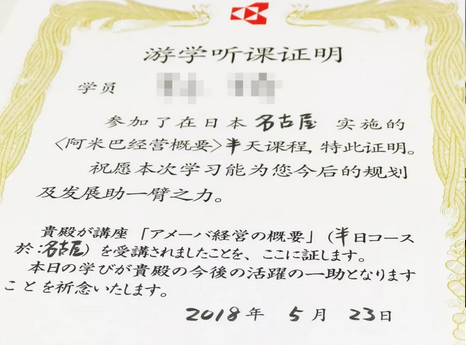 游学听课证明
学员
参加了在日本名古屋实施的
〈阿米巴经营概要〉半天课程,特此证明。
祝愿本次学习能为您今后的规划
及发展助一臂之力。
貴殿が講座「アメーバ経営の概要」(半日コース
於:名古屋)を受講されましたことを、ここに証します。
本日の学びが貴殿の今後の活躍の一助となります
ことを祈念いたします。
2018年 5月 23日